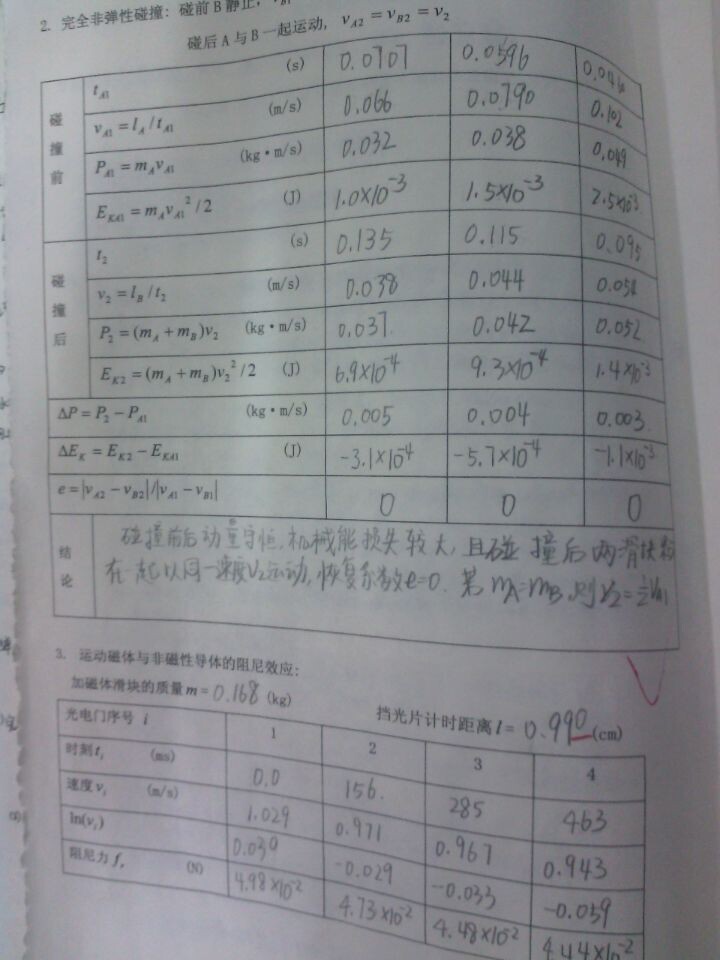 2. 完全非弹性碰撞: 碰前 B 静止,
碰后 A 与 B 一起运动, v_A2 = v_B2 = v_2
碰撞前
t_A1 (s) 0.0707 0.0596
v_A1 = l_A / t_A1 (m/s) 0.066 0.0790 0.102
P_A1 = m_A v_A1 (kg·m/s) 0.032 0.038 0.049
E_KA1 = m_A v_A1² / 2 (J) 1.0×10⁻³ 1.5×10⁻³ 2.5×10⁻³
碰撞后
t_2 (s) 0.135 0.115 0.095
v_2 = l_B / t_2 (m/s) 0.038 0.044 0.054
P_2 = (m_A + m_B)v_2 (kg·m/s) 0.037. 0.042 0.052
E_K2 = (m_A + m_B)v_2² / 2 (J) 6.9×10⁻⁴ 9.3×10⁻⁴ 1.4×10⁻³
ΔP = P_2 − P_A1 (kg·m/s) 0.005 0.004 0.003
ΔE_K = E_K2 − E_KA1 (J) −3.1×10⁻⁴ −5.7×10⁻⁴ −1.1×10⁻³
e = |v_A2 − v_B2| / |v_A1 − v_B1| 0 0 0
结论
碰撞前后动量守恒, 机械能损失较大, 且碰撞后两滑块
在一起以同一速度V₂运动, 恢复系数e=0. 若 m_A=m_B, 则 V₂=½V_A1
3. 运动磁体与非磁性导体的阻尼效应:
加磁体滑块的质量 m = 0.168 (kg) 挡光片计时距离 l = 0.990 (cm)
光电门序号 i 1 2 3 4
时刻 t_i (ms) 0.0 156. 285 463
速度 v_i (m/s) 1.029 0.971 0.967 0.943
ln(v_i) 0.030 −0.029 −0.033 −0.059
阻尼力 f_r (N) 4.98×10⁻² 4.73×10⁻² 4.48×10⁻² 4.44×10⁻²